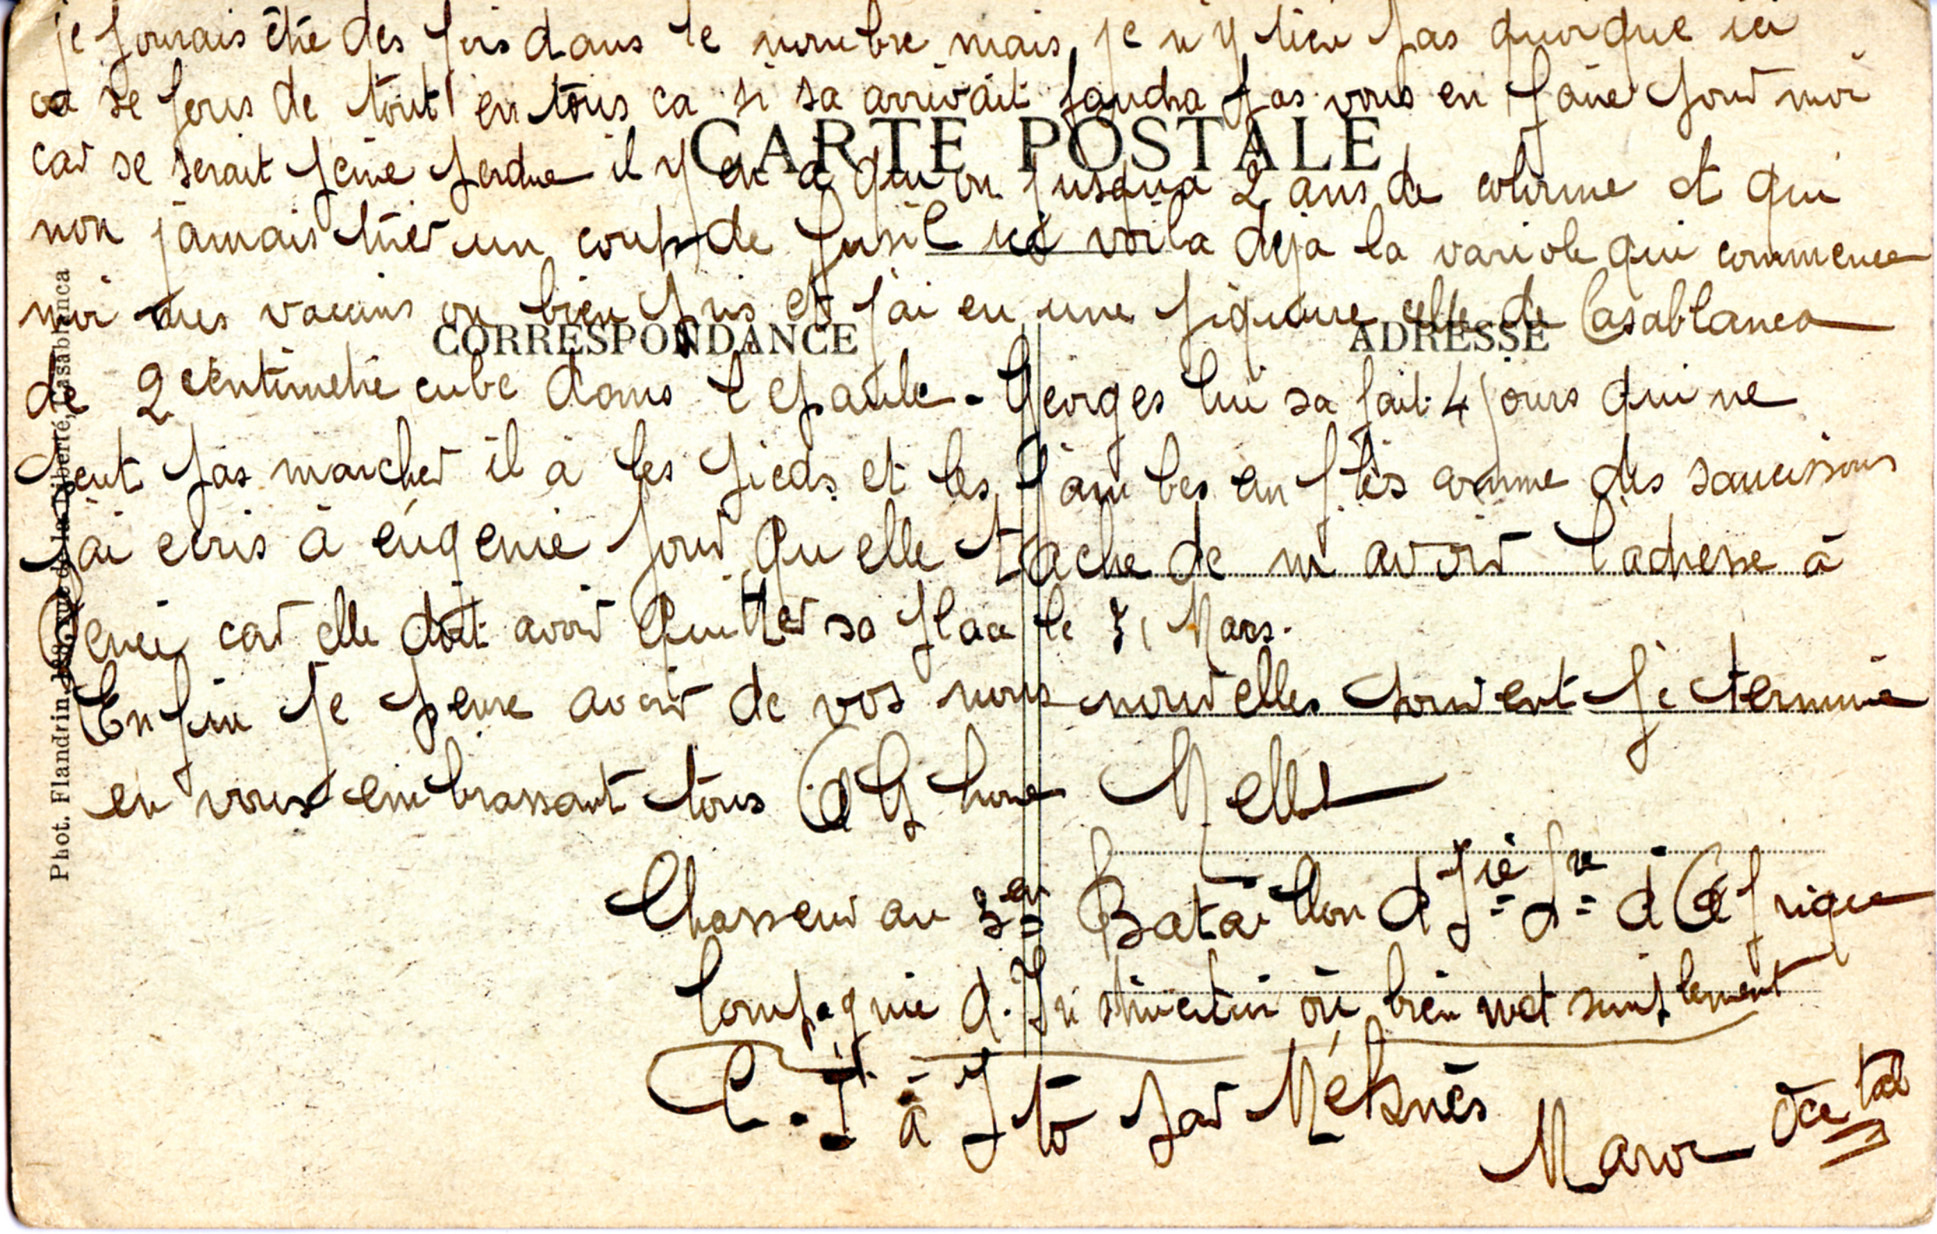 je pourais être des fois dans le nombre mais je n'y tien pas quoique ici
ca se fous de tout en tous ca si sa arrivait faudra pas vous en faire pour moi
CARTE POSTALE
car se serait peine perdue il y en a qui on jusqua 2 ans de colonne et qui
non jamais tirer un coup de fusil ici voila deja la variole qui commence
moi mes vaccins on bien pris et j'ai eu une piqure celle de Casablanca
CORRESPONDANCE
ADRESSE
de 2 centimetre cube dans l epaule - Georges lui sa fait 4 jours qui ne
peut pas marcher il à les pieds et les jambes enfles comme des saucissons
j'ai ecris à eugenie pour qu elle tache de m avoir l adresse à
car elle doit avoir quitter sa place le 31 Mars.
Enfin je pense avoir de vos nouvelles souvent je termine
en vous embrassant tous
Chasseur au 3em Bataillon d'Iie Lre d'Afrique
Compagnie d. Instruction ou bien met simplement
C. I. à Ito par Méknès
Maroc Occtal
Phot. Flandrin, rue de la Liberté, Casablanca